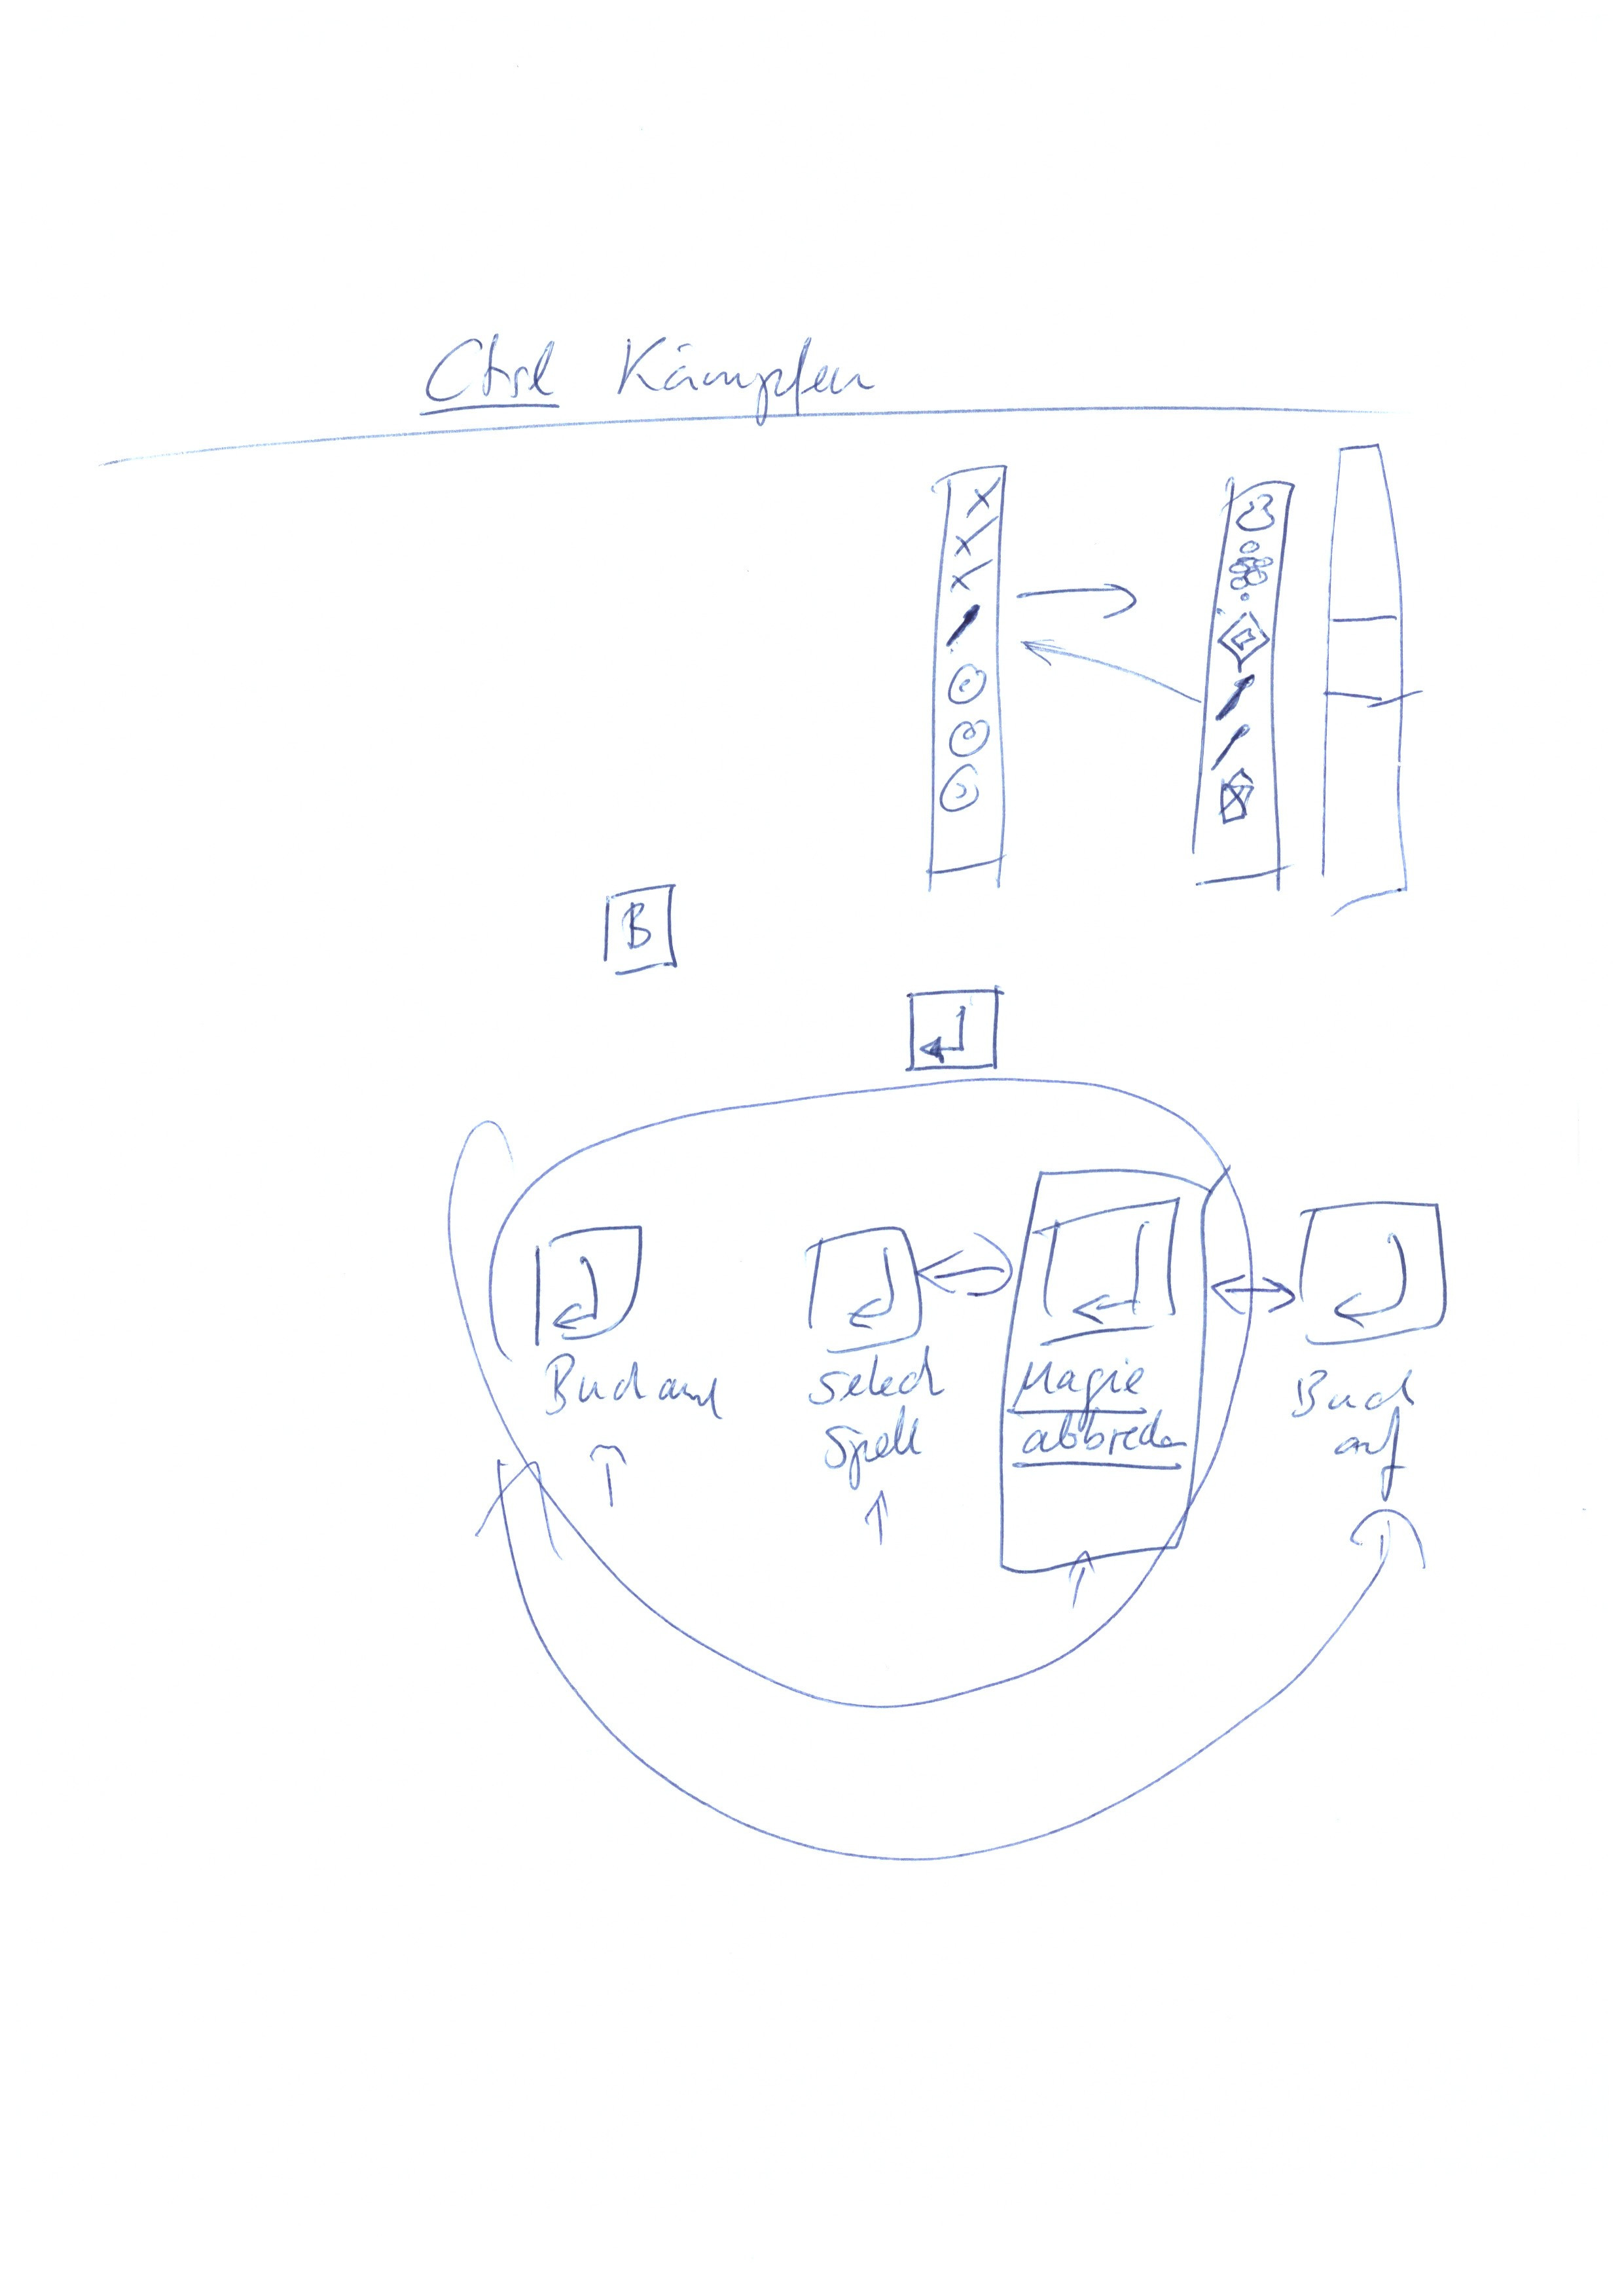 Ctrl Kämpfen
B
Buch auf
Select
Spell
Magie
abbrechen
Buch
auf